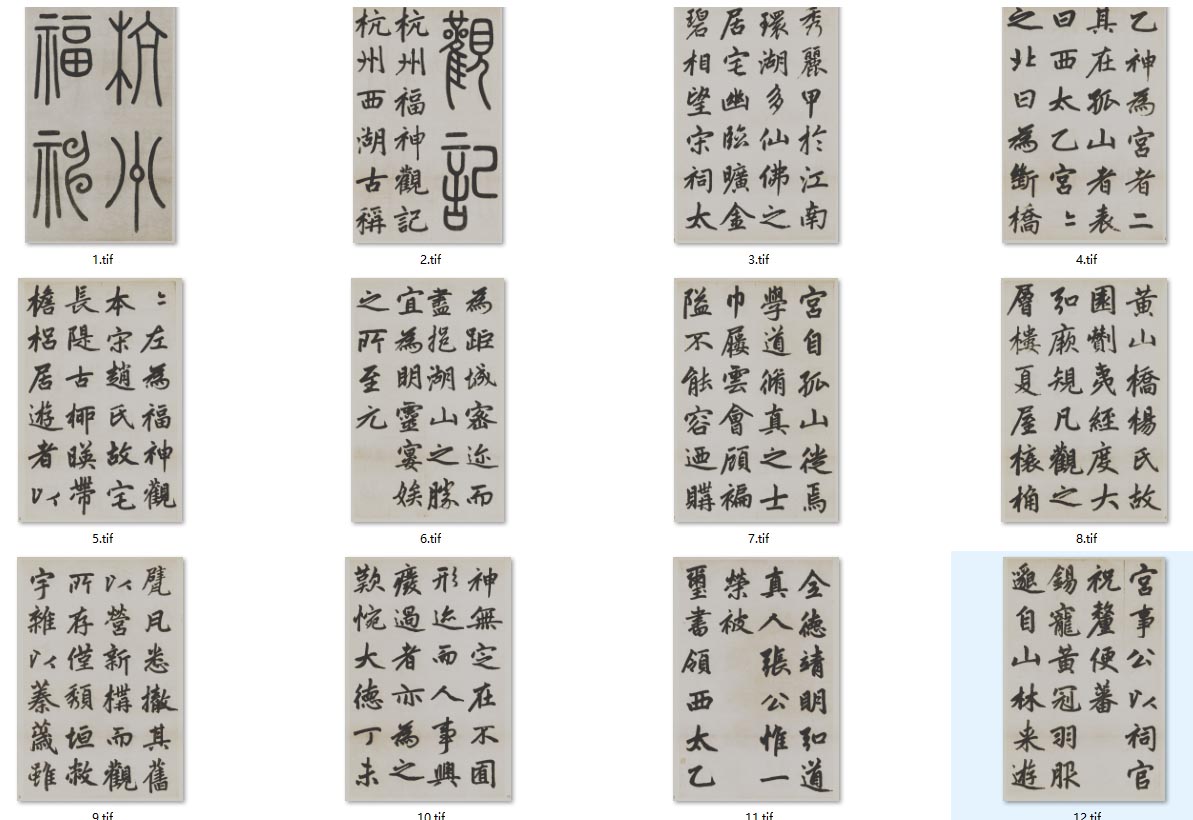 杭州
福神
1.tif
觀記
杭州福神觀記
杭州西湖古稱
2.tif
秀麗甲於江南
環湖多仙佛之
居宅幽臨曠金
碧相望宋祠太
3.tif
乙神為宮者二
其在孤山者表
曰西太乙宮〻
之北曰為斷橋
4.tif
〻左為福神觀
本宋趙氏故宅
長隄古柳暎帶
檐梠居遊者以
5.tif
為距城密迩而
盡挹湖山之勝
宜為明靈宴娭
之所至元
6.tif
宮自孤山徙焉
學道脩真之士
巾屨雲會頋褊
隘不能容迺購
7.tif
黃山橋楊氏故
園劗夷經度大
弘厥規凡觀之
層樓夏屋榱桷
8.tif
甓凡悉撤其舊
以營新構而觀
所存僅頹垣敝
宇雜以蓁薉雖
9.tif
神無定在不囿
形迹而人事興
廢過者亦為之
歎惋大德丁未
10.tif
全德靖明弘道
真人張公惟一
榮被
璽書領西太乙
11.tif
宮事公以祠官
祝釐便蕃
錫寵黃冠羽服
邈自山林来遊
12.tif